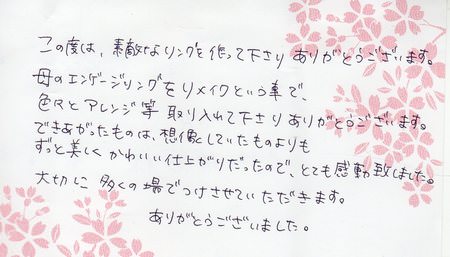 この度は、素敵なリングを作って下さりありがとうございます。
母のエンゲージリングをリメイクという事で、
色々とアレンジ等取り入れて下さりありがとうございます。
できあがったものは、想像していたものよりも
ずっと美しくかわいい仕上がりだったので、とても感動致しました。
大切に多くの場でつけさせていただきます。
ありがとうございました。